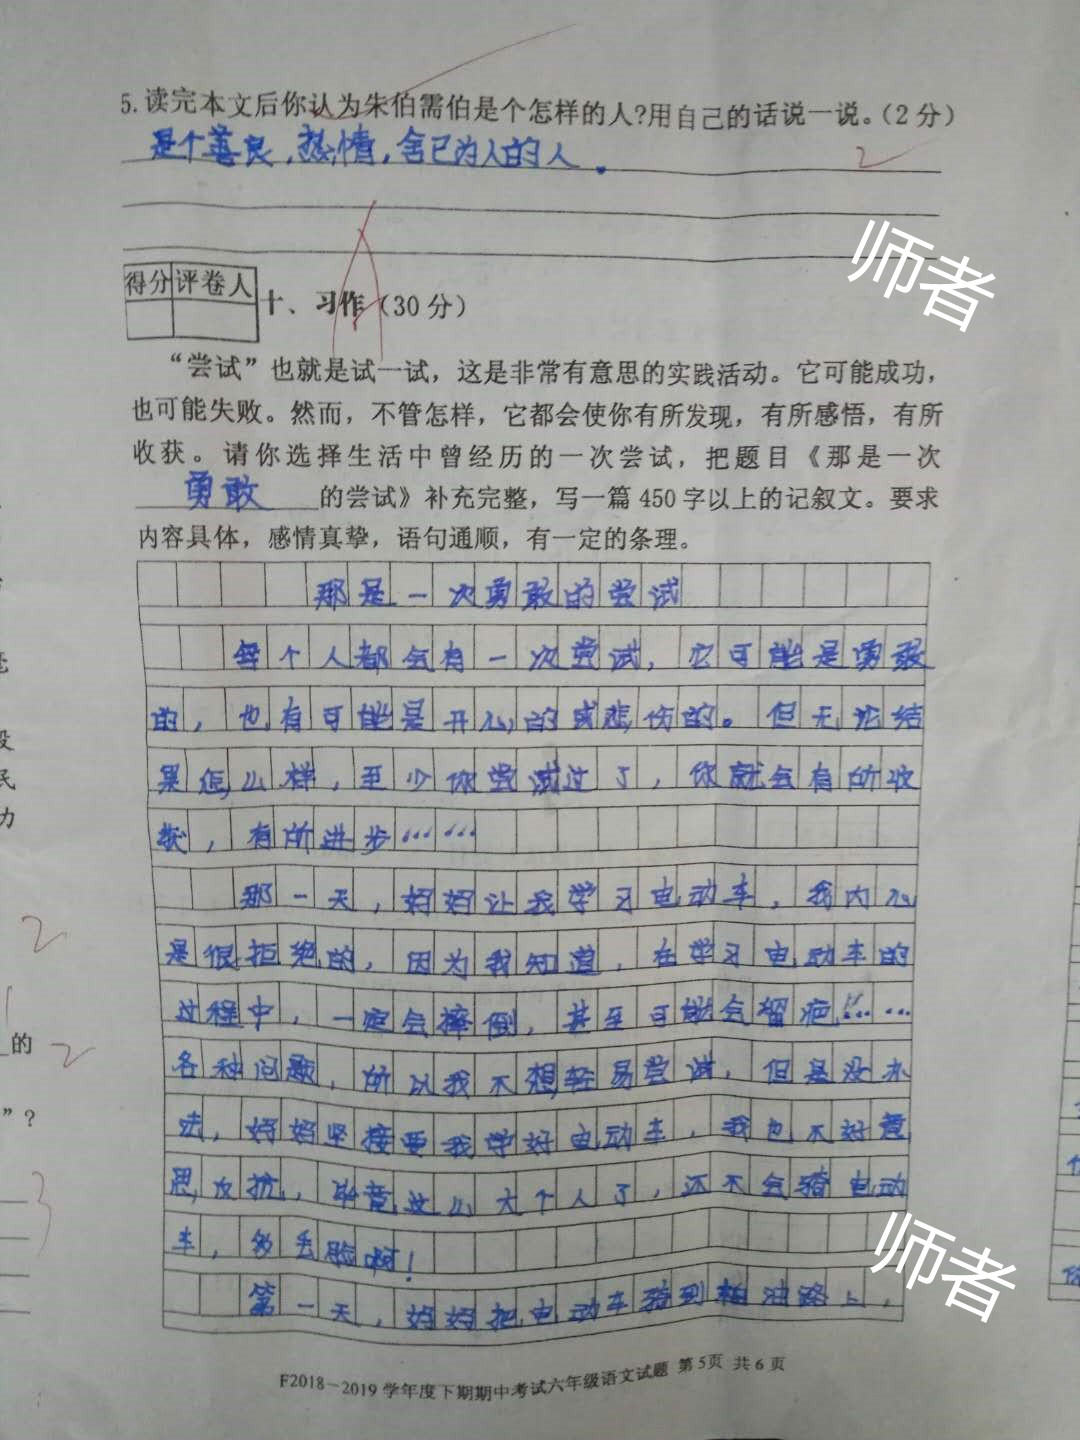 5.读完本文后你认为朱伯需伯是个怎样的人?用自己的话说一说。(2分)
是个善良,热情,舍己为人的人。
2
师者
得分 评卷人
十、习作(30分)
“尝试”也就是试一试，这是非常有意思的实践活动。它可能成功，
也可能失败。然而，不管怎样，它都会使你有所发现，有所感悟，有所
收获。请你选择生活中曾经历的一次尝试，把题目《那是一次
勇敢的尝试》补充完整，写一篇450字以上的记叙文。要求
内容具体，感情真挚，语句通顺，有一定的条理。
那是一次勇敢的尝试
每个人都会有一次尝试，它可能是勇敢
的，也有可能是开心的或悲伤的。但无论结
果怎么样，至少你尝试过了，你就会有所收
获，有所进步……
那一天，妈妈让我学习电动车，我内心
是很拒绝的，因为我知道，在学习电动车的
过程中，一定会摔倒，甚至可能会留疤!……
各种问题，所以我不想轻易尝试，但是没办
法，妈妈坚接要我学好电动车，我也不好意
思反抗，毕竟这么大个人了，还不会骑电动
车，多丢脸啊!
第一天，妈妈把电动车骑到柏油路上，
师者
F2018－2019学年度下期期中考试六年级语文试题 第5页 共6页
2
的
2
”?
段
民
力